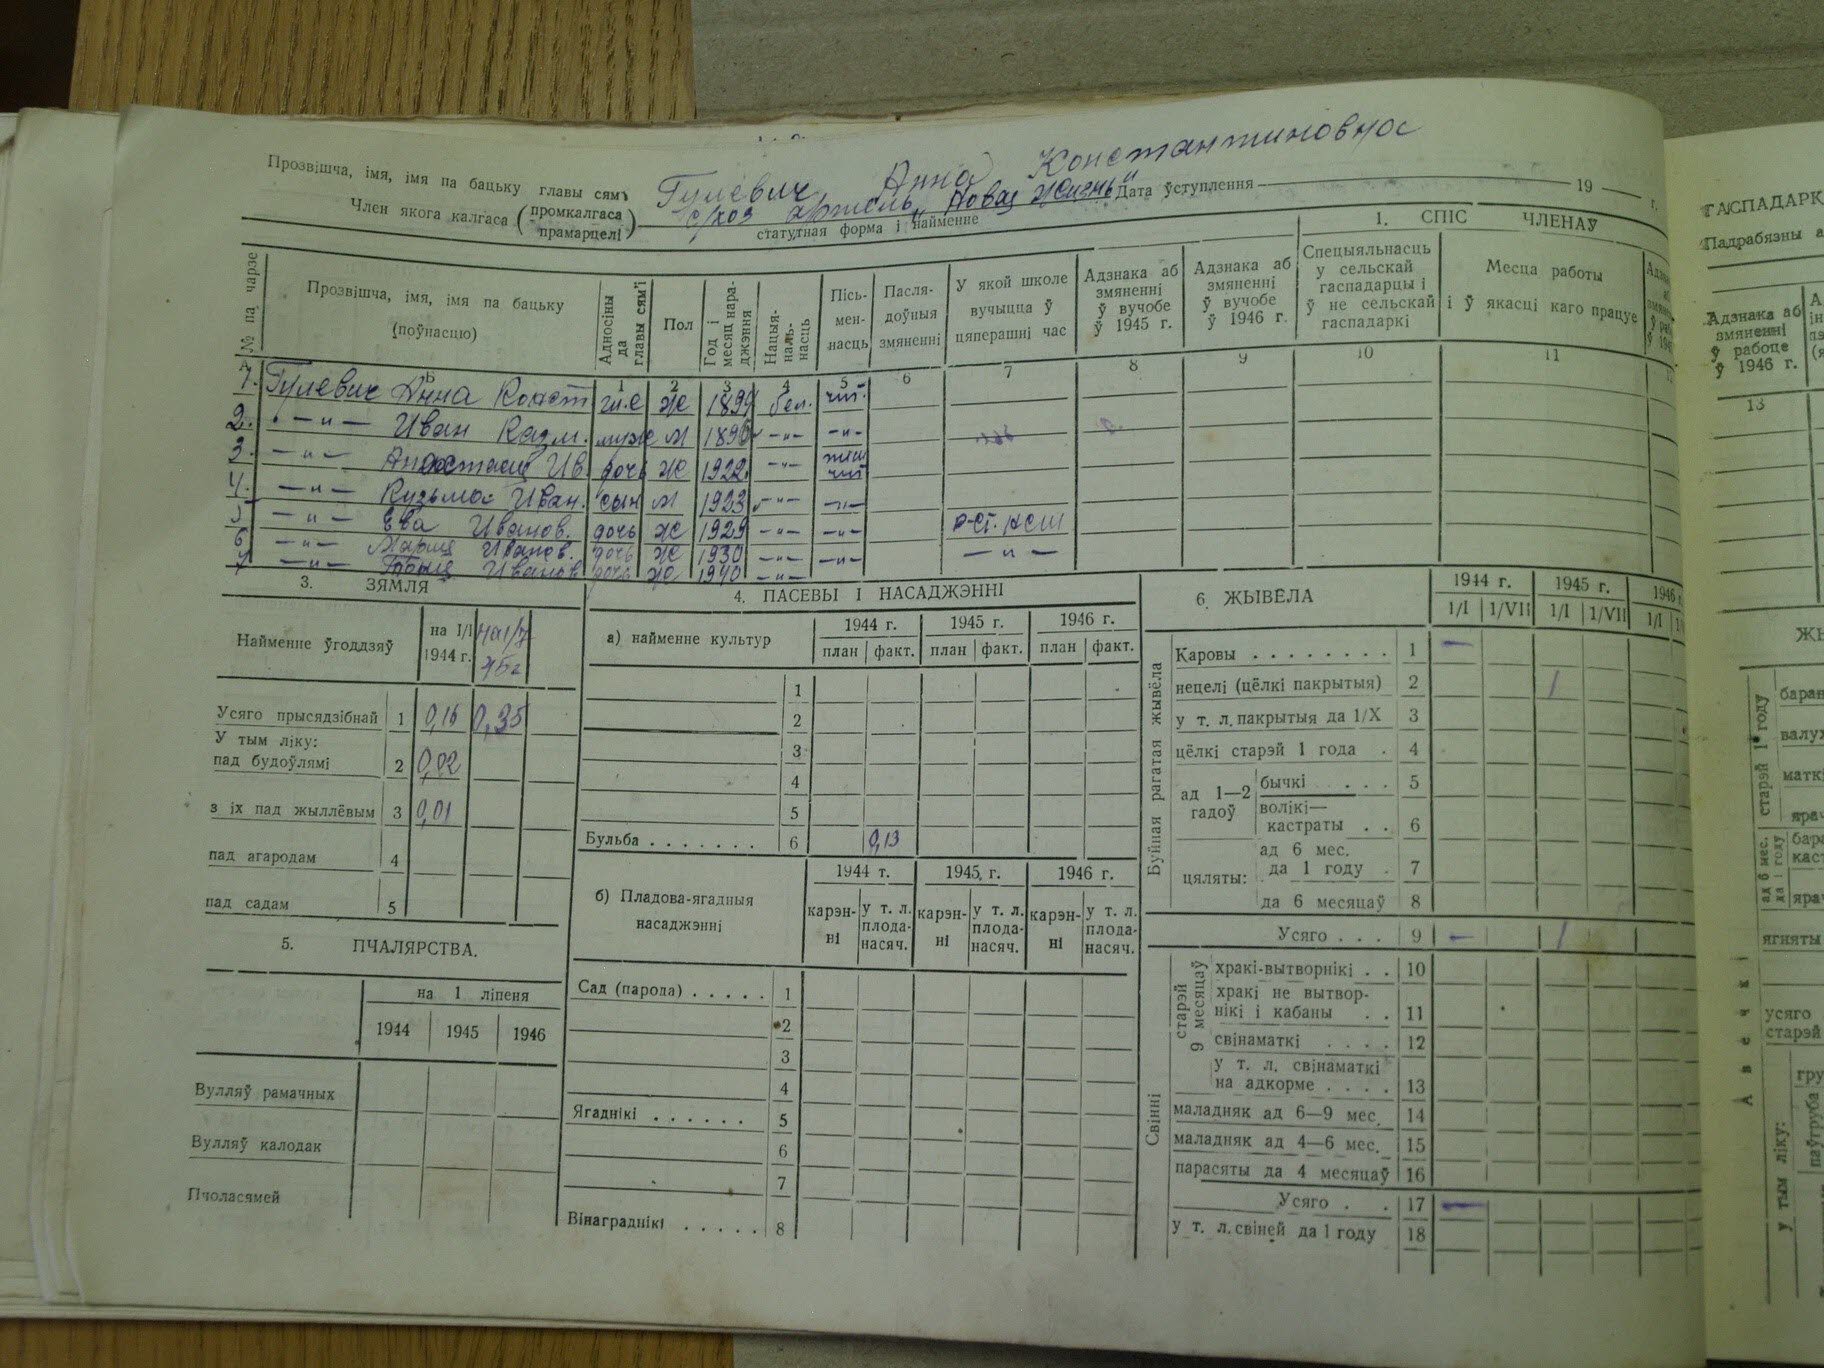 Прозвішча, імя, імя па бацьку главы сям'і Гулевич Анна Константиновна
Член якога калгаса (промкалгаса прамарцелі) с/хоз артель „Новая Жизнь" Дата ўступлення 19 г.
статутная форма і найменне
1. СПІС ЧЛЕНАЎ
№ па чарзе
Прозвішча, імя, імя па бацьку (поўнасцю)
Адносіны да главы сям'і
Пол
Год і месяц нараджэння
Нацыянальнасць
Пісьменнасць
Паслядоўныя змяненні
У якой школе вучыцца ў цяперашні час
Адзнака аб змяненні ў вучобе ў 1945 г.
Адзнака аб змяненні ў вучобе ў 1946 г.
Спецыяльнасць у сельскай гаспадарцы і ў не сельскай гаспадаркі
Месца работы і ў якасці каго працуе
А Б 1 2 3 4 5 6 7 8 9 10 11
1. Гулевич Анна Конст гл.с Ж 1899 бел. чит.
2. —"— Иван Казм. муж М 189 —"— —"—
3. —"— Анастасия Ив. дочь Ж 1922 —"—
4. —"— Кузьма Иван. сын М 1923 —"— —"—
5 —"— Ева Иванов. дочь Ж 1929 —"— —"— НСШ
6 —"— Мария Иванов. дочь Ж 1930 —"— —"— —"—
7 —"— Иванов дочь Ж 1940 —"—
3. ЗЯМЛЯ
Найменне ўгоддзяў на 1/I 1944 г. на 1/7
Усяго прысядзібнай 1 0,15 0,35
У тым ліку:
пад будоўлямі 2 0,02
з іх пад жыллёвым 3 0,01
пад агародам 4
пад садам 5
5. ПЧАЛЯРСТВА.
на 1 ліпеня
1944 1945 1946
Вулляў рамачных
Вулляў калодак
Пчоласямей
4. ПАСЕВЫ І НАСАДЖЭННІ
а) найменне культур 1944 г. 1945 г. 1946 г.
план факт. план факт. план факт.
1
2
3
4
5
Бульба . . . . . . . 6 0,13
б) Пладова-ягадныя насаджэнні 1944 г. 1945 г. 1946 г.
карэнні у т. л. плоданасяч. карэнні у т. л. плоданасяч. карэнні у т. л. плоданасяч.
Сад (парода) . . . . . 1
2
3
4
Ягаднікі . . . . . . 5
6
7
Вінаграднікі . . . . . 8
6. ЖЫВЁЛА 1944 г. 1945 г. 1946
1/I 1/VII 1/I 1/VII 1/I
Буйная рагатая жывёла
Каровы . . . . . . . . 1 —
нецелі (цёлкі пакрытыя) 2 1
у т. л. пакрытыя да 1/X 3
цёлкі старэй 1 года . 4
ад 1—2 гадоў
бычкі . . . . 5
волікі—кастраты . . 6
цяляты:
ад 6 мес. да 1 году . 7
да 6 месяцаў 8
Усяго . . . 9 — 1
Свінні
старэй 9 месяцаў
хракі-вытворнікі . . 10
хракі не вытворнікі і кабаны . . 11
свінаматкі . . . . 12
у т. л. свінаматкі на адкорме . . . . 13
маладняк ад 6—9 мес. 14
маладняк ад 4—6 мес. 15
парасяты да 4 месяцаў 16
Усяго . . 17 —
у т. л. свіней да 1 году 18
ГАСПАДАРК
Адзнака аб змяненні ў рабоце ў 1946 г.
13
старэй 1 году
ад 6 мес. да 1 году
ягняты
Авечкі
усяго
старэй
у тым ліку: